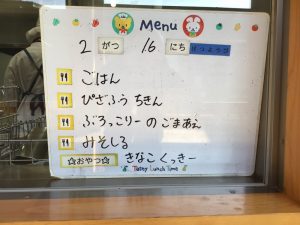 Menu
2 がつ 16 にち げつようび
ごはん
ぴざふう ちきん
ぶろっこりーの ごまあえ
みそしる
☆おやつ☆ きなこ くっきー
Tasty Lunch Time